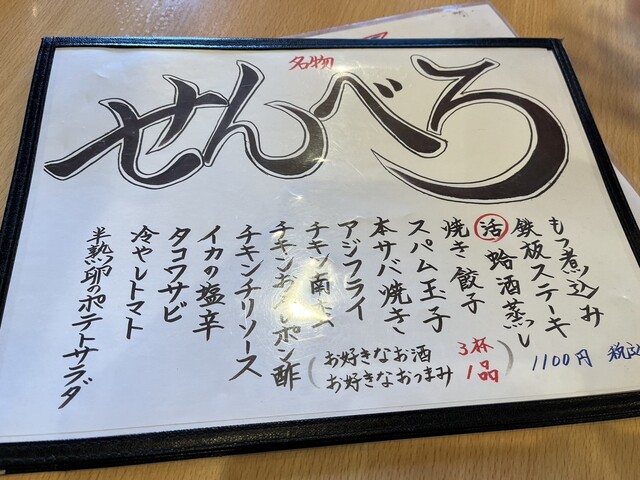 名物
せんべろ
もつ煮込み
鉄板ステーキ
活 蛤酒蒸し
焼き餃子
スパム玉子
本サバ焼き
アジフライ
チキン南蛮
チキンおろしポン酢
チキンチリソース
イカの塩辛
タコワサビ
冷やしトマト
半熟卵のポテトサラダ
(お好きなお酒 3杯
お好きなおつまみ 1品)
1100円 税込